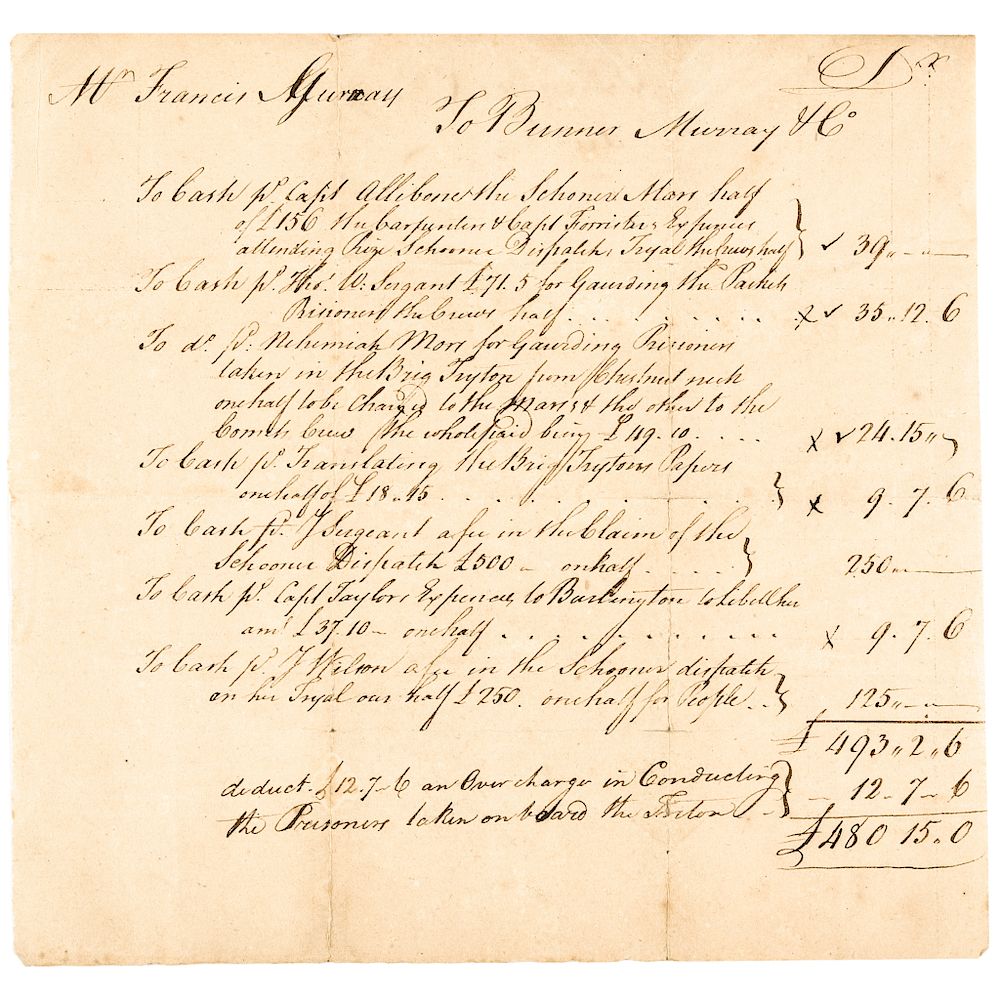 Dr.
Mr. Francis Gurnay
To Bunner Murray & Co
To Cash pd. Capt Allibone the Schoner Mars half
of £156 the Carpenters & Capt Forristers Expences
attending Prize Schooner Dispatchs Tryal the Crews half } ✓ 39 „ - „ -
To Cash pd. Thos. W: Sergant £71.5 for Gaurding the Packets
Prisioners the Crews half . . . . . . . . x ✓ 35 „ 12 . 6
To do. pd. Nehemiah Mors for Gaurding Prisioners
taken in the Brig Tryton from Chestnut neck
one half to be Charg'd to the Mars & the other to the
Comets Crew the whole paid being £49.10 . . . . x ✓ 24 . 15 „
To Cash pd. Translating the Brig Trytons Papers
one half of £18 „ 15 . . . . . . . . . . } x 9 . 7 . 6
To Cash pd. J Sergeant a fee in the Claim of the
Schooner Dispatch £500 – one half . . . . . } 250 „ -
To Cash pd. Capt Taylors Expences to Burlington to Libell her
amt £37.10 – one half . . . . . . . . . . . x 9 . 7 . 6
To Cash pd. J Wilson a fee in the Schooner dispatch
on her Tryal our half £250 . one half for People . . } 125 „ - „ -
£ 493 „ 2 „ 6
deduct £12.7-6 an Over charge in Conducting
the Prisoners taken on board the Triton } - 12 - 7 - 6
£ 480 15 „ 0